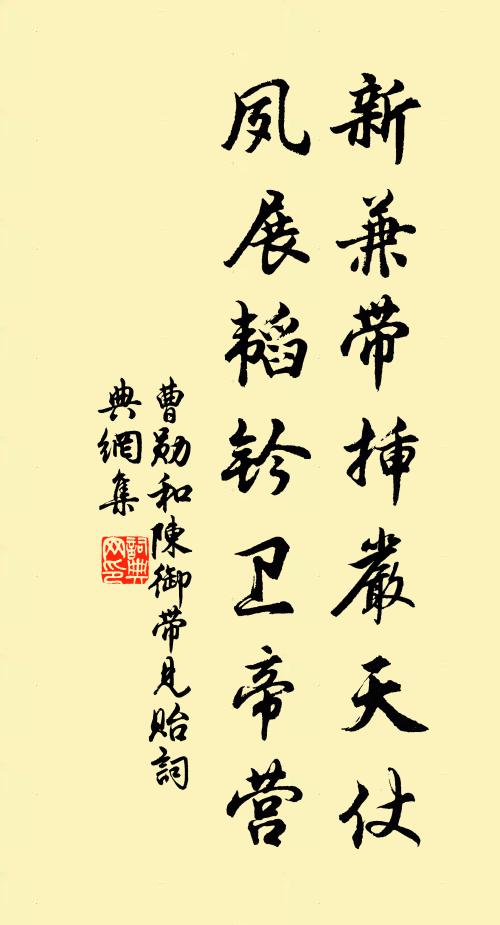 新兼带插嚴天仗
夙展韬钤卫帝营
曹勋和陳御带見貽詞
典網集
詞典
网印